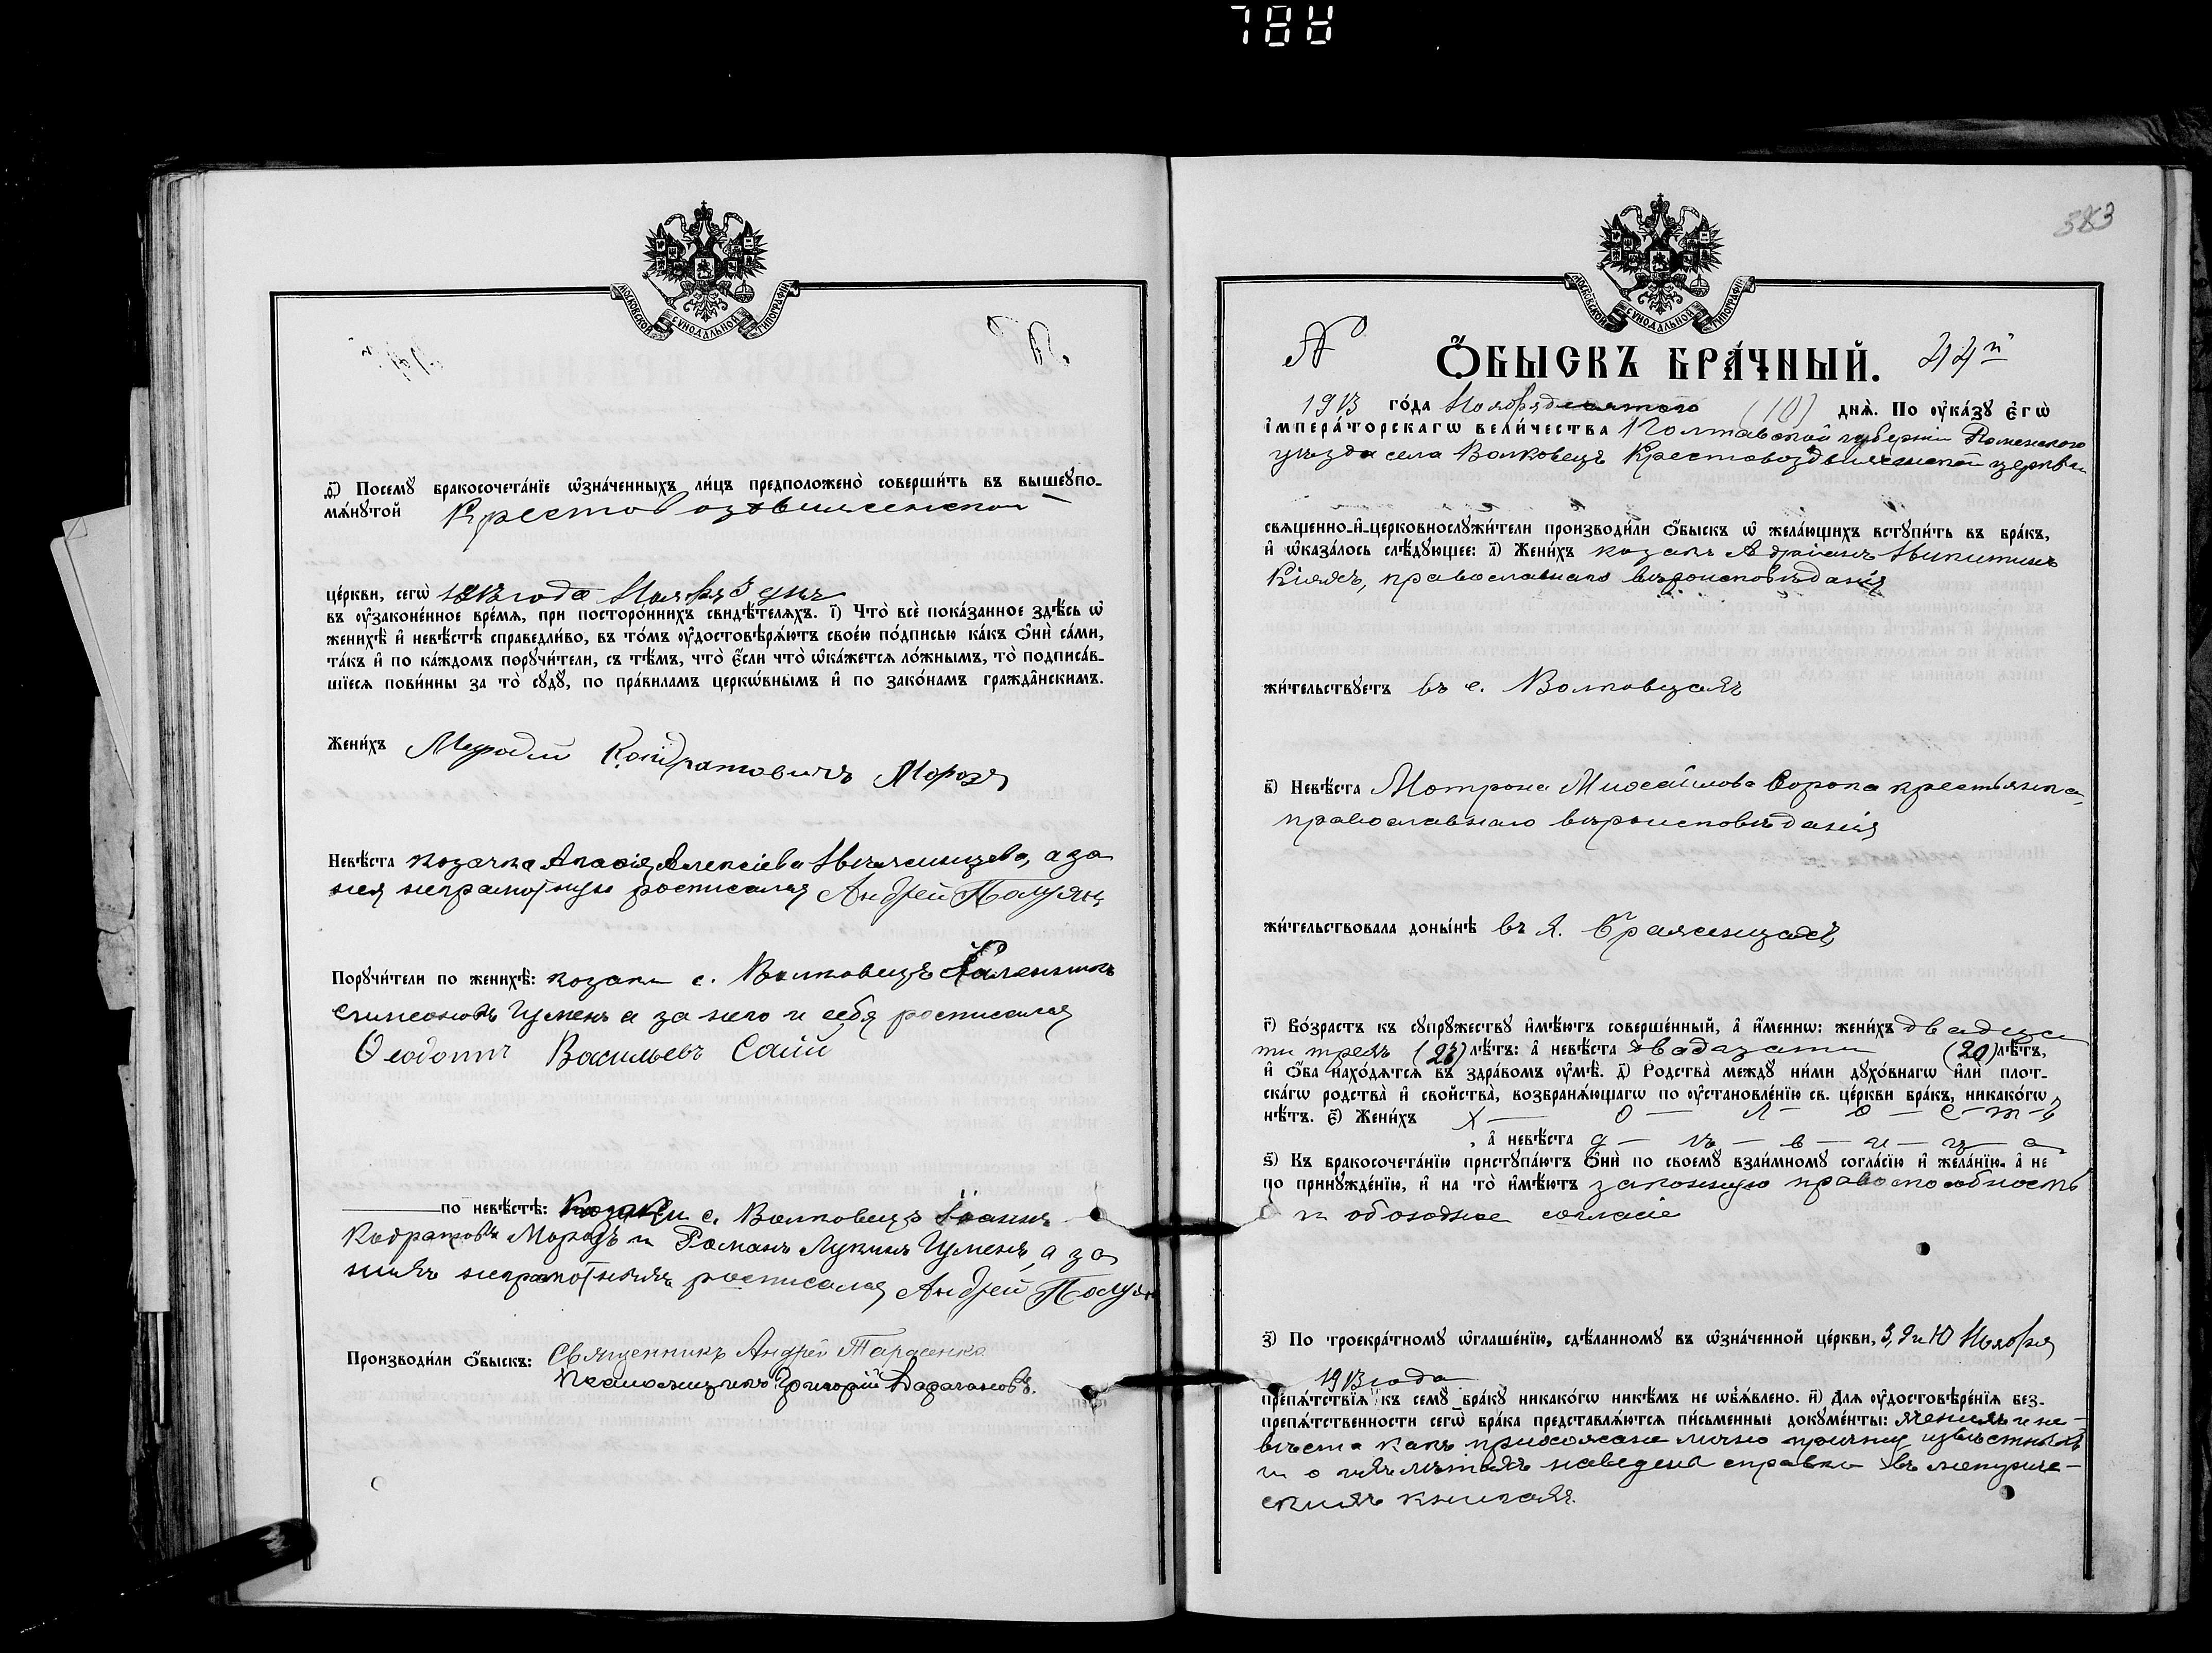 788
МОСКОВСКОЙ СѴНОДАЛЬНОЙ ТИПОГРАФІИ
ѳ҃) Посемꙋ̀ бракосочета́нїе ѡ҆зна́ченныхъ ли́цъ предположено̀ соверши́ть въ вышеꙋпо-
мѧ́нꙋтой Крестовоздвиженской
це́ркви, сегѡ̀ 1913 года Ноябр. дня
въ ᲂу҆зако́ненное вре́мѧ, при посторо́ннихъ свидѣ́телѧхъ. і҃) Что̀ всѐ пока́занное здѣ́сь ѡ҆
женихѣ̀ и҆ невѣ́стѣ справедли́во, въ то́мъ ᲂу҆достовѣрѧ́ютъ свое́ю по́дписью ка́къ ѻ҆нѝ са́ми,
та́къ и҆ по ка́ждомъ порꙋчи́тели, съ тѣ́мъ, что̀ є҆́сли что̀ ѡ҆ка́жетсѧ ло́жнымъ, то̀ подписа́в-
шїесѧ пови́нны за то̀ сꙋдꙋ̀, по пра́виламъ церкѡ́внымъ и҆ по зако́намъ гражда̑нскимъ.
Жени́хъ Мефодий Кондратовичъ Морозъ
Невѣ́ста козачка Алексіева а за
нея неграмотную росписался Андрей Полуян
Порꙋчи́тели по женихѣ̀: козаки с. Волковецъ
Симеоновъ Гуменъ а за него и себя росписался
Ѳеодотъ Васильевъ Саій
по невѣ́стѣ: Козаки с. Волковецъ Іоаннъ
Кодратовъ Морозъ и Романъ Лукинъ Гуменъ, а за
нихъ неграмотныхъ росписался Андрей Полуян
Производи́ли ѻ҆́быскъ: Священникъ Андрей Тарасенко
Псаломщикъ Григорій
583
МОСКОВСКОЙ СѴНОДАЛЬНОЙ ТИПОГРАФІИ
№ Ѻ҆́БЫСКЪ БРА́ЧНЫЙ. 44й
1913 го́да Ноября десятого (10) днѧ̀. По ᲂу҆ка́зꙋ є҆гѡ̀
і҆мпера́торскагѡ вели́чества Полтавской губерніи Роменского
уѣзда села Волковецъ Крестовоздвиженской церкви
свѧщенно-и҆-церковнослꙋжи́тели производи́ли ѻ҆́быскъ ѡ҆ жела́ющихъ встꙋпи́ть въ бра́къ,
и҆ ѡ҆каза́лось слѣ́дꙋющее: а҃) Жени́хъ козакъ Адріанъ Никитинъ
Кіяхъ, православнаго вѣроисповѣданія
жи́тельствꙋетъ въ с. Волковцахъ
в҃) Невѣ́ста Мотрона Михаилова Сорока крестьянка,
православнаго вѣроисповѣданія
жи́тельствовала доны́нѣ въ х. Бражницахъ
г҃) Во́зрастъ къ сꙋпрꙋ́жествꙋ и҆мѣ́ютъ соверше́нный, а҆ и҆́меннѡ: жени́хъ двадца
ти трехъ (23) лѣ́тъ: а҆ невѣ́ста двадцати (20) лѣ́тъ,
и҆ ѻ҆́ба нахо́дѧтсѧ въ здра́вомъ ᲂу҆мѣ̀. д҃) Родства̀ междꙋ̀ ни́ми дꙋхо́внагѡ и҆лѝ плот-
ска́гѡ родства̀ и҆ свойства̀, возбранѧ́ющагѡ по ᲂу҆становле́нїю св. це́ркви бра́къ, никако́гѡ
нѣ́тъ. є҃) Жени́хъ х — о — л — о — с — т — ъ
, а҆ невѣ́ста д — ѣ — в — и — ц — а
ѕ҃) Къ бракосочета́нїю пристꙋпа́ютъ ѻ҆нѝ по своемꙋ̀ взаи́мномꙋ согла́сїю и҆ жела́нїю, а҆ не
по принꙋжде́нїю, и҆ на то̀ и҆мѣ́ютъ законную правоспособность
и обоюдное согласіе
з҃) По троекра́тномꙋ ѡ҆глаше́нїю, сдѣ́ланномꙋ въ ѡ҆зна́ченной це́ркви, 3, 9 и 10 Ноября
1913 года
препѧ́тствїѧ къ семꙋ̀ бра́кꙋ никако́гѡ никѣ́мъ не ѡ҆б̾ѧ́влено. и҃) Длѧ ᲂу҆достовѣре́нїѧ без-
препѧ́тственности сегѡ̀ бра́ка представлѧ́ютсѧ пи́сьменные докꙋме́нты: женихъ и не-
вѣста какъ прихожане лично причту извѣстны
и о ихъ лѣтахъ наведена справка въ метриче-
скихъ книгахъ.